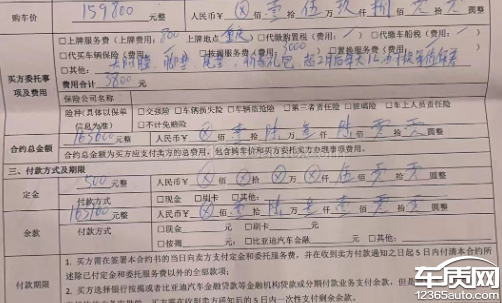 购车价 159800 元整 人民币¥ ⊗ 佰 壹 拾 伍 万 玖 仟 捌 佰 零 拾 零 圆整
买方委托事项及费用
□上牌服务费(上牌费用: 800 上牌地点 重庆) □代缴购置税(费用: □代缴车船税(费用:
□代买车辆保险(费用: □按揭服务费(费用: 3000 □置换服务费(费用:
□其他:
费用合计 3800 元
保险公司名称
险种(具体以保单信息为准) □交强险 □车辆损失险 □车辆盗抢险 □第三者责任险 □玻璃险 □车上人员责任险
□不计免赔险
合约总金额 163600 元整 人民币¥ ⊗ 佰 壹 拾 陆 万 叁 仟 陆 佰 零 拾 零 圆整
合约总金额为买方应支付卖方的总费用,包含购车价和买方委托卖方办理事项费用。
三、付款方式及期限
定金 500 元整 人民币¥ ⊗ 佰 ⊗ 拾 ⊗ 万 ⊗ 仟 伍 佰 零 拾 零 圆整
付款方式 □现金 □刷卡 □其他:
余款 163100 元整 人民币¥ ⊗ 佰 壹 拾 陆 万 叁 仟 壹 佰 零 拾 零 圆整
付款方式 □现金 元 □刷卡 元
□按揭 元 □比亚迪汽车金融 □其他:
付款期限
1. 买方需在签署本合约书的当日向卖方支付定金和委托服务费,并在收到卖方付款通知之日起5日内付清本合约所
述除已付定金和委托服务费以外的全部款项;
2. 买方选择银行按揭或者比亚迪汽车金融贷款等金融机构贷款或分期付款业务支付余款,但是
车质网
12365auto.com